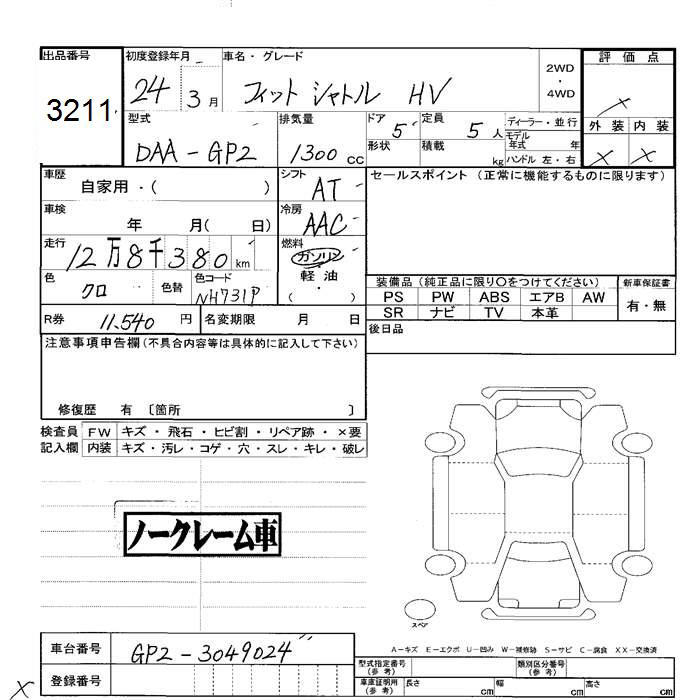 出品番号 初度登録年月 車名・グレード 評価点
3211 24 3月 フィット シャトル HV 2WD・4WD ×
型式 排気量 ドア 定員 ディーラー・並行 外装 内装
DAA-GP2 1300cc 5 5人 モデル年式 年 × ×
形状 積載 kg ハンドル 左・右
車歴 シフト セールスポイント (正常に機能するものに限ります)
自家用・( ) AT
車検 冷房
年 月( 日) AAC
走行 燃料
12万8千380km ガソリン
軽油
・
( )
色 色替 色コード
クロ NH731P
装備品 (純正品に限り〇をつけてください) 新車保証書
PS PW ABS エアB AW 有・無
SR ナビ TV 本革
R券 11.540円 名変期限 月 日 後日品
注意事項申告欄(不具合内容等は具体的に記入して下さい)
修復歴 有 〔箇所 〕
検査員 FW キズ・飛石・ヒビ割・リペア跡・×要
記入欄 内装 キズ・汚レ・コゲ・穴・スレ・キレ・破レ
ノークレーム車
スペア
A-キズ E-エクボ U-凹み W-補修跡 S-サビ C-腐食 XX-交換済
車台番号 GP2-3049024
型式指定番号(参考) 類別区分番号(参考)
× 登録番号
車庫証明用(参考) 長さ cm 幅 cm 高さ cm